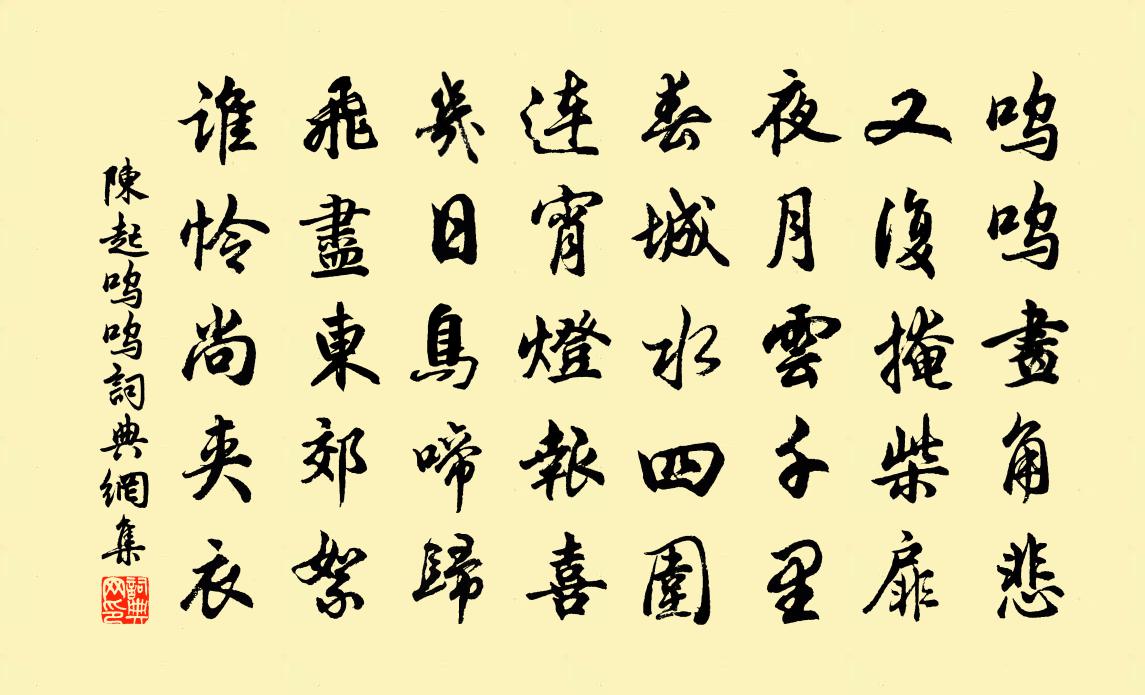 嗚嗚畫角悲
又復掩柴扉
夜月雲千里
春城水四圍
連宵燈報喜
幾日鳥啼歸
飛盡東郊絮
誰憐尚夾衣
陳起嗚嗚詞典網集
詞典
网印